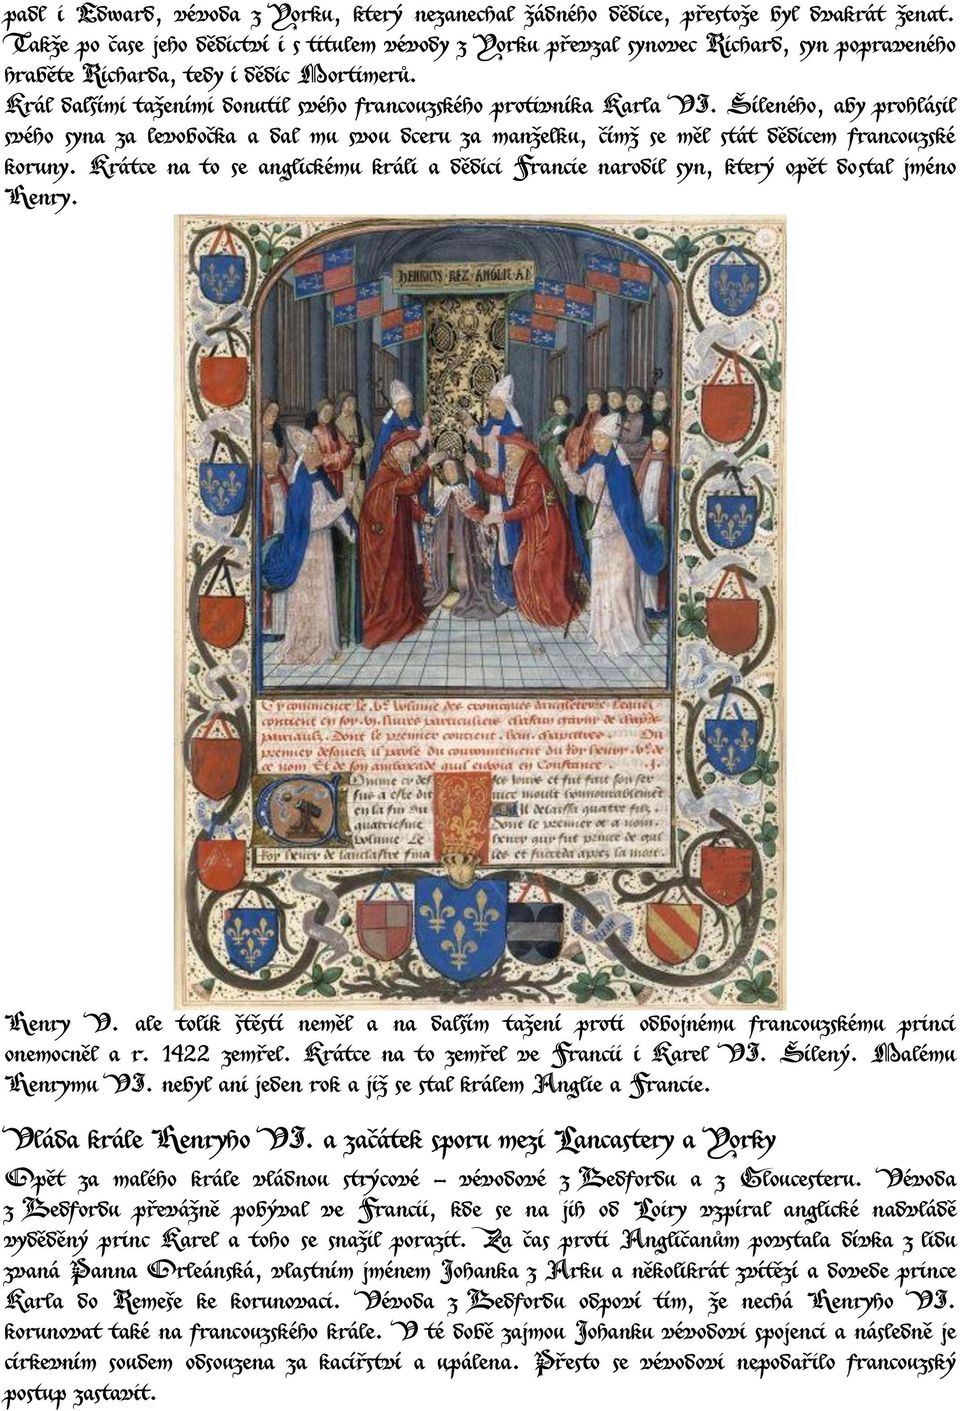 padl i Edward, vévoda z Yorku, který nezanechal žádného dědice, přestože byl dvakrát ženat.
Takže po čase jeho dědictví i s titulem vévody z Yorku převzal synovec Richard, syn popraveného
hraběte Richarda, tedy i dědic Mortimerů.
Král dalšími taženími donutil svého francouzského protivníka Karla VI. Šíleného, aby prohlásil
svého syna za levobočka a dal mu svou dceru za manželku, čímž se měl stát dědicem francouzské
koruny. Krátce na to se anglickému králi a dědici Francie narodil syn, který opět dostal jméno
Henry.
HENRICVS REX ANGLIE
Cy commence le .V.e volume des croniques dangleterre. Lequel
contient en soy .vi. liures particuliers
Dont le premier contient
premier desquelz il parle du couronnement du Roy henry .V.e de
ce nom Et de son ambaxade quil enuoia en Constance. .J.
Comme cy des
sus a este dit
en la fin du
quatriesme
volume Le
Roy henry de lanclastre fina
ses Jours et fut fait son ser
uice moult honnourablement
Il delaissa quatre filz.
Dont le premier ot a nom
henry quy fut prince de gal
les et succeda apres la mort.
Henry V. ale tolik štěstí neměl a na dalším tažení proti odbojnému francouzskému princi
onemocněl a r. 1422 zemřel. Krátce na to zemřel ve Francii i Karel VI. Šílený. Malému
Henrymu VI. nebyl ani jeden rok a již se stal králem Anglie a Francie.
Vláda krále Henryho VI. a začátek sporu mezi Lancastery a Yorky
Opět za malého krále vládnou strýcové – vévodové z Bedfordu a z Gloucesteru. Vévoda
z Bedfordu převážně pobýval ve Francii, kde se na jih od Loiry vzpíral anglické nadvládě
vyděděný princ Karel a toho se snažil porazit. Za čas proti Angličanům povstala dívka z lidu
zvaná Panna Orleánská, vlastním jménem Johanka z Arku a několikrát zvítězí a dovede prince
Karla do Remeše ke korunovaci. Vévoda z Bedfordu odpoví tím, že nechá Henryho VI.
korunovat také na francouzského krále. V té době zajmou Johanku vévodovi spojenci a následně je
církevním soudem odsouzena za kacířství a upálena. Přesto se vévodovi nepodařilo francouzský
postup zastavit.